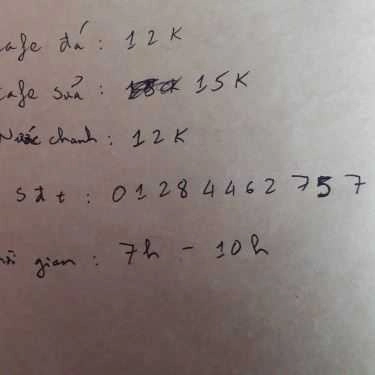 cafe đá : 12K
cafe sữa : 15K
Nước chanh : 12K
Sđt : 01284462757
gian : 7h - 10h